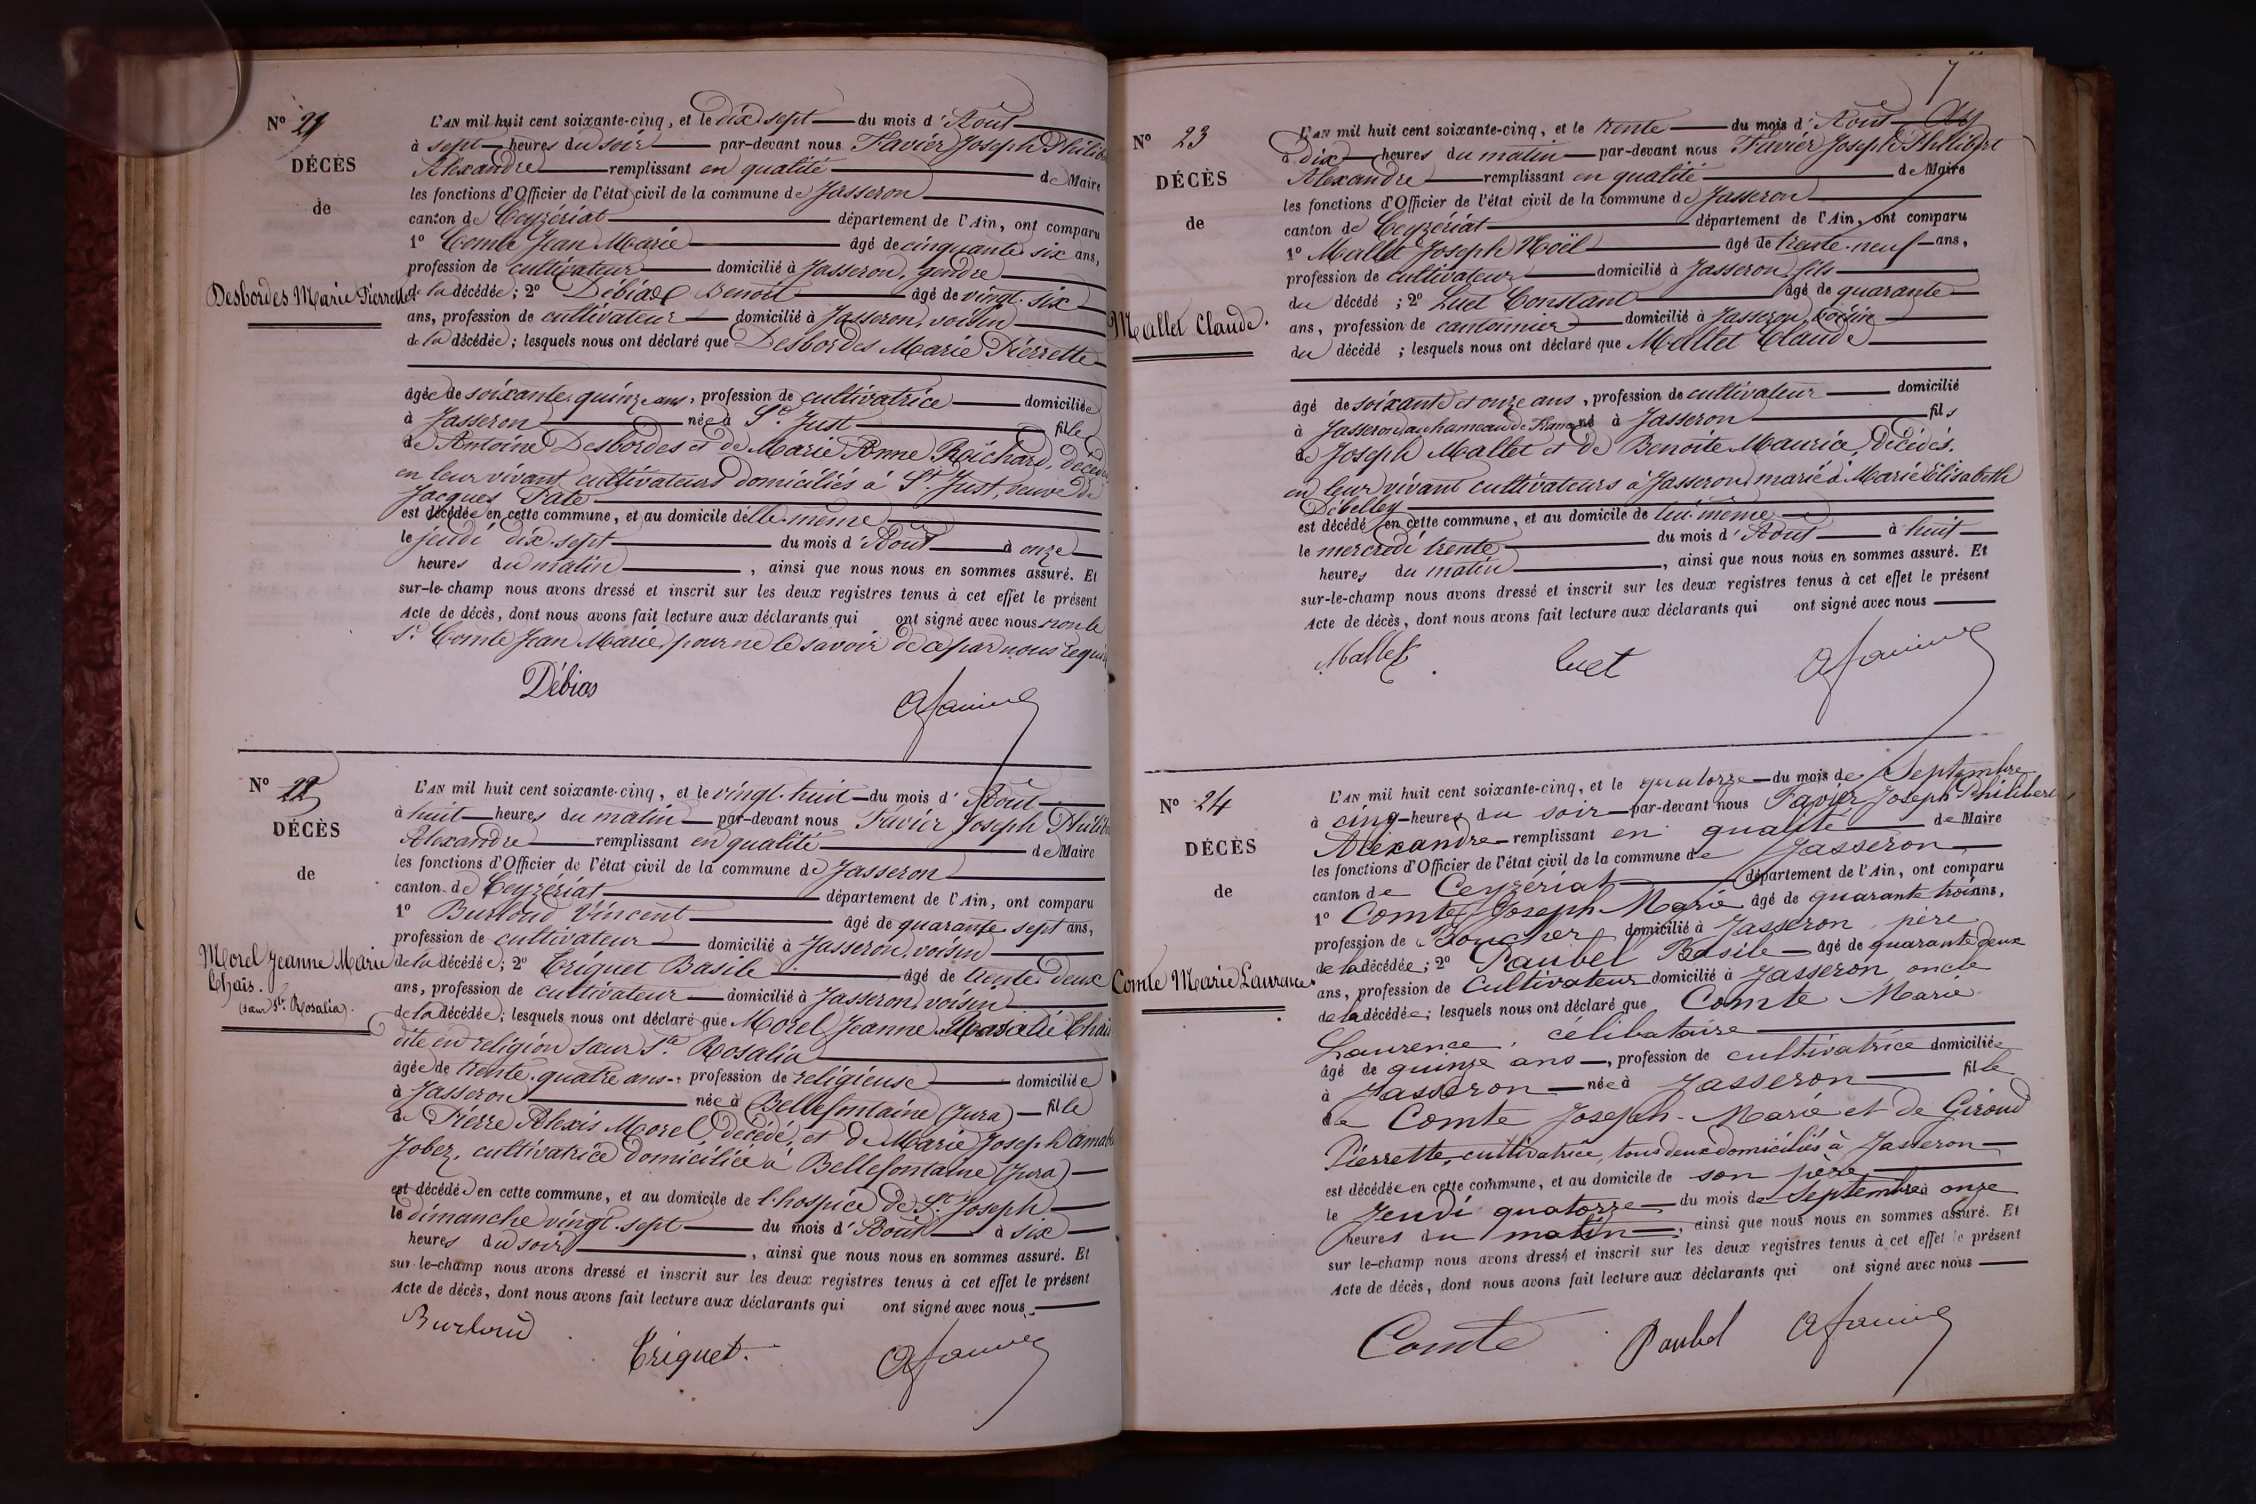 N° 21
DÉCÈS
de
Desbordes Marie Pierrette
L'AN mil huit cent soixante-cinq, et le dix sept du mois d'Août
à sept heures du soir par-devant nous Favier Joseph Philib
Alexandre remplissant en qualité de Maire
les fonctions d'Officier de l'état civil de la commune de Jasseron
canton de Ceyzériat département de l'Ain, ont comparu
1° Comte Jean Marie âgé de cinquante six ans,
profession de cultivateur domicilié à Jasseron, gendre
de la décédée; 2° Débias Benoit âgé de vingt-six
ans, profession de cultivateur domicilié à Jasseron, voisin
de la décédée; lesquels nous ont déclaré que Desbordes Marie Pierrette
âgée de soixante-quinze ans, profession de cultivatrice domiciliée
à Jasseron née à St. Just fille
de Antoine Desbordes et de Marie Anne Roichard, décédés
en leur vivant cultivateurs domiciliés à St. Just, veuve de
Jacques
est décédée en cette commune, et au domicile d'elle-même
le jeudi dix-sept du mois d'Août à onze
heures du matin, ainsi que nous nous en sommes assuré. Et
sur-le-champ nous avons dressé et inscrit sur les deux registres tenus à cet effet le présent
Acte de décès, dont nous avons fait lecture aux déclarants qui ont signé avec nous non le
Sr. Comte Jean Marie, pour ne le savoir de ce par nous requis
Débias
afavier
N° 22
DÉCÈS
de
Morel Jeanne Marie
Thaïs.
(sœur Ste. Rosalia).
L'AN mil huit cent soixante-cinq, et le vingt-huit du mois d'Août
à huit heures du matin par-devant nous Favier Joseph Philib
Alexandre remplissant en qualité de Maire
les fonctions d'Officier de l'état civil de la commune de Jasseron
canton de Ceyzériat département de l'Ain, ont comparu
1° Burloud Vincent âgé de quarante sept ans,
profession de cultivateur domicilié à Jasseron, voisin
de la décédée; 2° Triquet Basile âgé de trente deux
ans, profession de cultivateur domicilié à Jasseron, voisin
de la décédée; lesquels nous ont déclaré que Morel Jeanne Marie Thaïs
dite en religion sœur Ste. Rosalia
âgée de trente-quatre ans, profession de religieuse domiciliée
à Jasseron née à Bellefontaine (Jura) fille
de Pierre Alexis Morel décédé, et de Marie Joseph
Jobez, cultivatrice domiciliée à Bellefontaine (Jura)
est décédée en cette commune, et au domicile de l'hospice de St. Joseph
le dimanche vingt-sept du mois d'Août à six
heures du soir, ainsi que nous nous en sommes assuré. Et
sur-le-champ nous avons dressé et inscrit sur les deux registres tenus à cet effet le présent
Acte de décès, dont nous avons fait lecture aux déclarants qui ont signé avec nous
Burloud
Triquet.
afavier
7
N° 23
DÉCÈS
de
Mallet Claude.
L'AN mil huit cent soixante-cinq, et le trente du mois d'Août
à dix heures du matin par-devant nous Favier Joseph Philibert
Alexandre remplissant en qualité de Maire
les fonctions d'Officier de l'état civil de la commune de Jasseron
canton de Ceyzériat département de l'Ain, ont comparu
1° Mallet Joseph Noël âgé de trente-neuf ans,
profession de cultivateur domicilié à Jasseron, fils
du décédé; 2° Luet Constant âgé de quarante
ans, profession de cantonnier domicilié à Jasseron, voisin
du décédé; lesquels nous ont déclaré que Mallet Claude
âgé de soixante et onze ans, profession de cultivateur domicilié
à Jasseron, au hameau de né à Jasseron fils
de Joseph Mallet et de Benoite Maurice, décédés.
en leur vivant cultivateurs à Jasseron, marié à Marie Elisabeth
Débelley
est décédé en cette commune, et au domicile de lui-même
le mercredi trente du mois d'Août à huit
heures du matin, ainsi que nous nous en sommes assuré. Et
sur-le-champ nous avons dressé et inscrit sur les deux registres tenus à cet effet le présent
Acte de décès, dont nous avons fait lecture aux déclarants qui ont signé avec nous
Mallet.
Luet
afavier
N° 24
DÉCÈS
de
Comte Marie Laurence
L'AN mil huit cent soixante-cinq, et le quatorze du mois de Septembre
à cinq heures du soir par-devant nous Favier Joseph Philibert
Alexandre remplissant en qualité de Maire
les fonctions d'Officier de l'état civil de la commune de Jasseron
canton de Ceyzériat département de l'Ain, ont comparu
1° Comte Joseph-Marie âgé de quarante trois ans,
profession de Boucher domicilié à Jasseron père
de la décédée; 2° Paubel Basile âgé de quarante deux
ans, profession de Cultivateur domicilié à Jasseron oncle
de la décédée; lesquels nous ont déclaré que Comte Marie
Laurence, célibataire
âgé de quinze ans, profession de cultivatrice domiciliée
à Jasseron née à Jasseron fille
de Comte Joseph-Marie et de Giroud
Pierrette, cultivatrice, tous deux domiciliés à Jasseron
est décédée en cette commune, et au domicile de son père
le Jeudi quatorze du mois de Septembre à onze
heures du matin, ainsi que nous nous en sommes assuré. Et
sur-le-champ nous avons dressé et inscrit sur les deux registres tenus à cet effet le présent
Acte de décès, dont nous avons fait lecture aux déclarants qui ont signé avec nous
Comte
Paubel
afavier